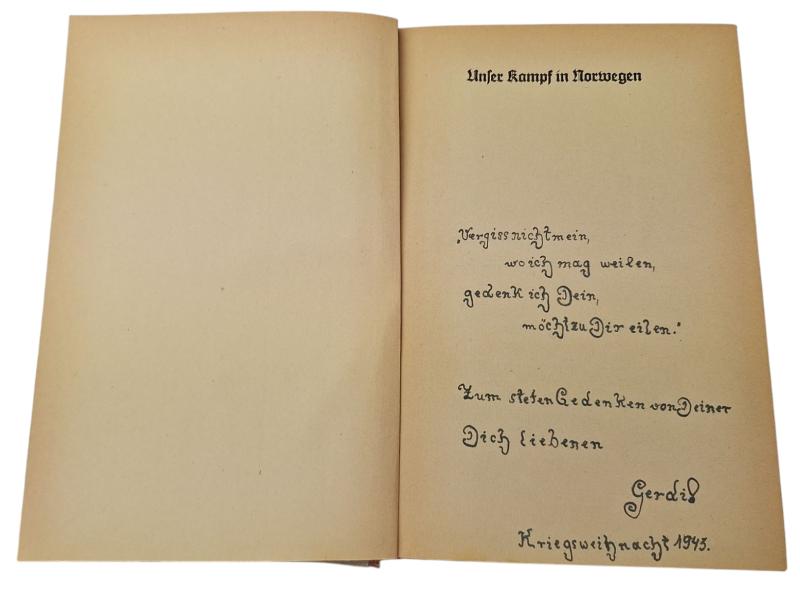 Unser Kampf in Norwegen
„Vergissnichtmein,
wo ich mag weilen,
gedenk ich Dein,
möcht zu Dir eilen."
Zum steten Gedenken von Deiner
Dich liebenen
Gerdis
Kriegsweihnacht 1943.